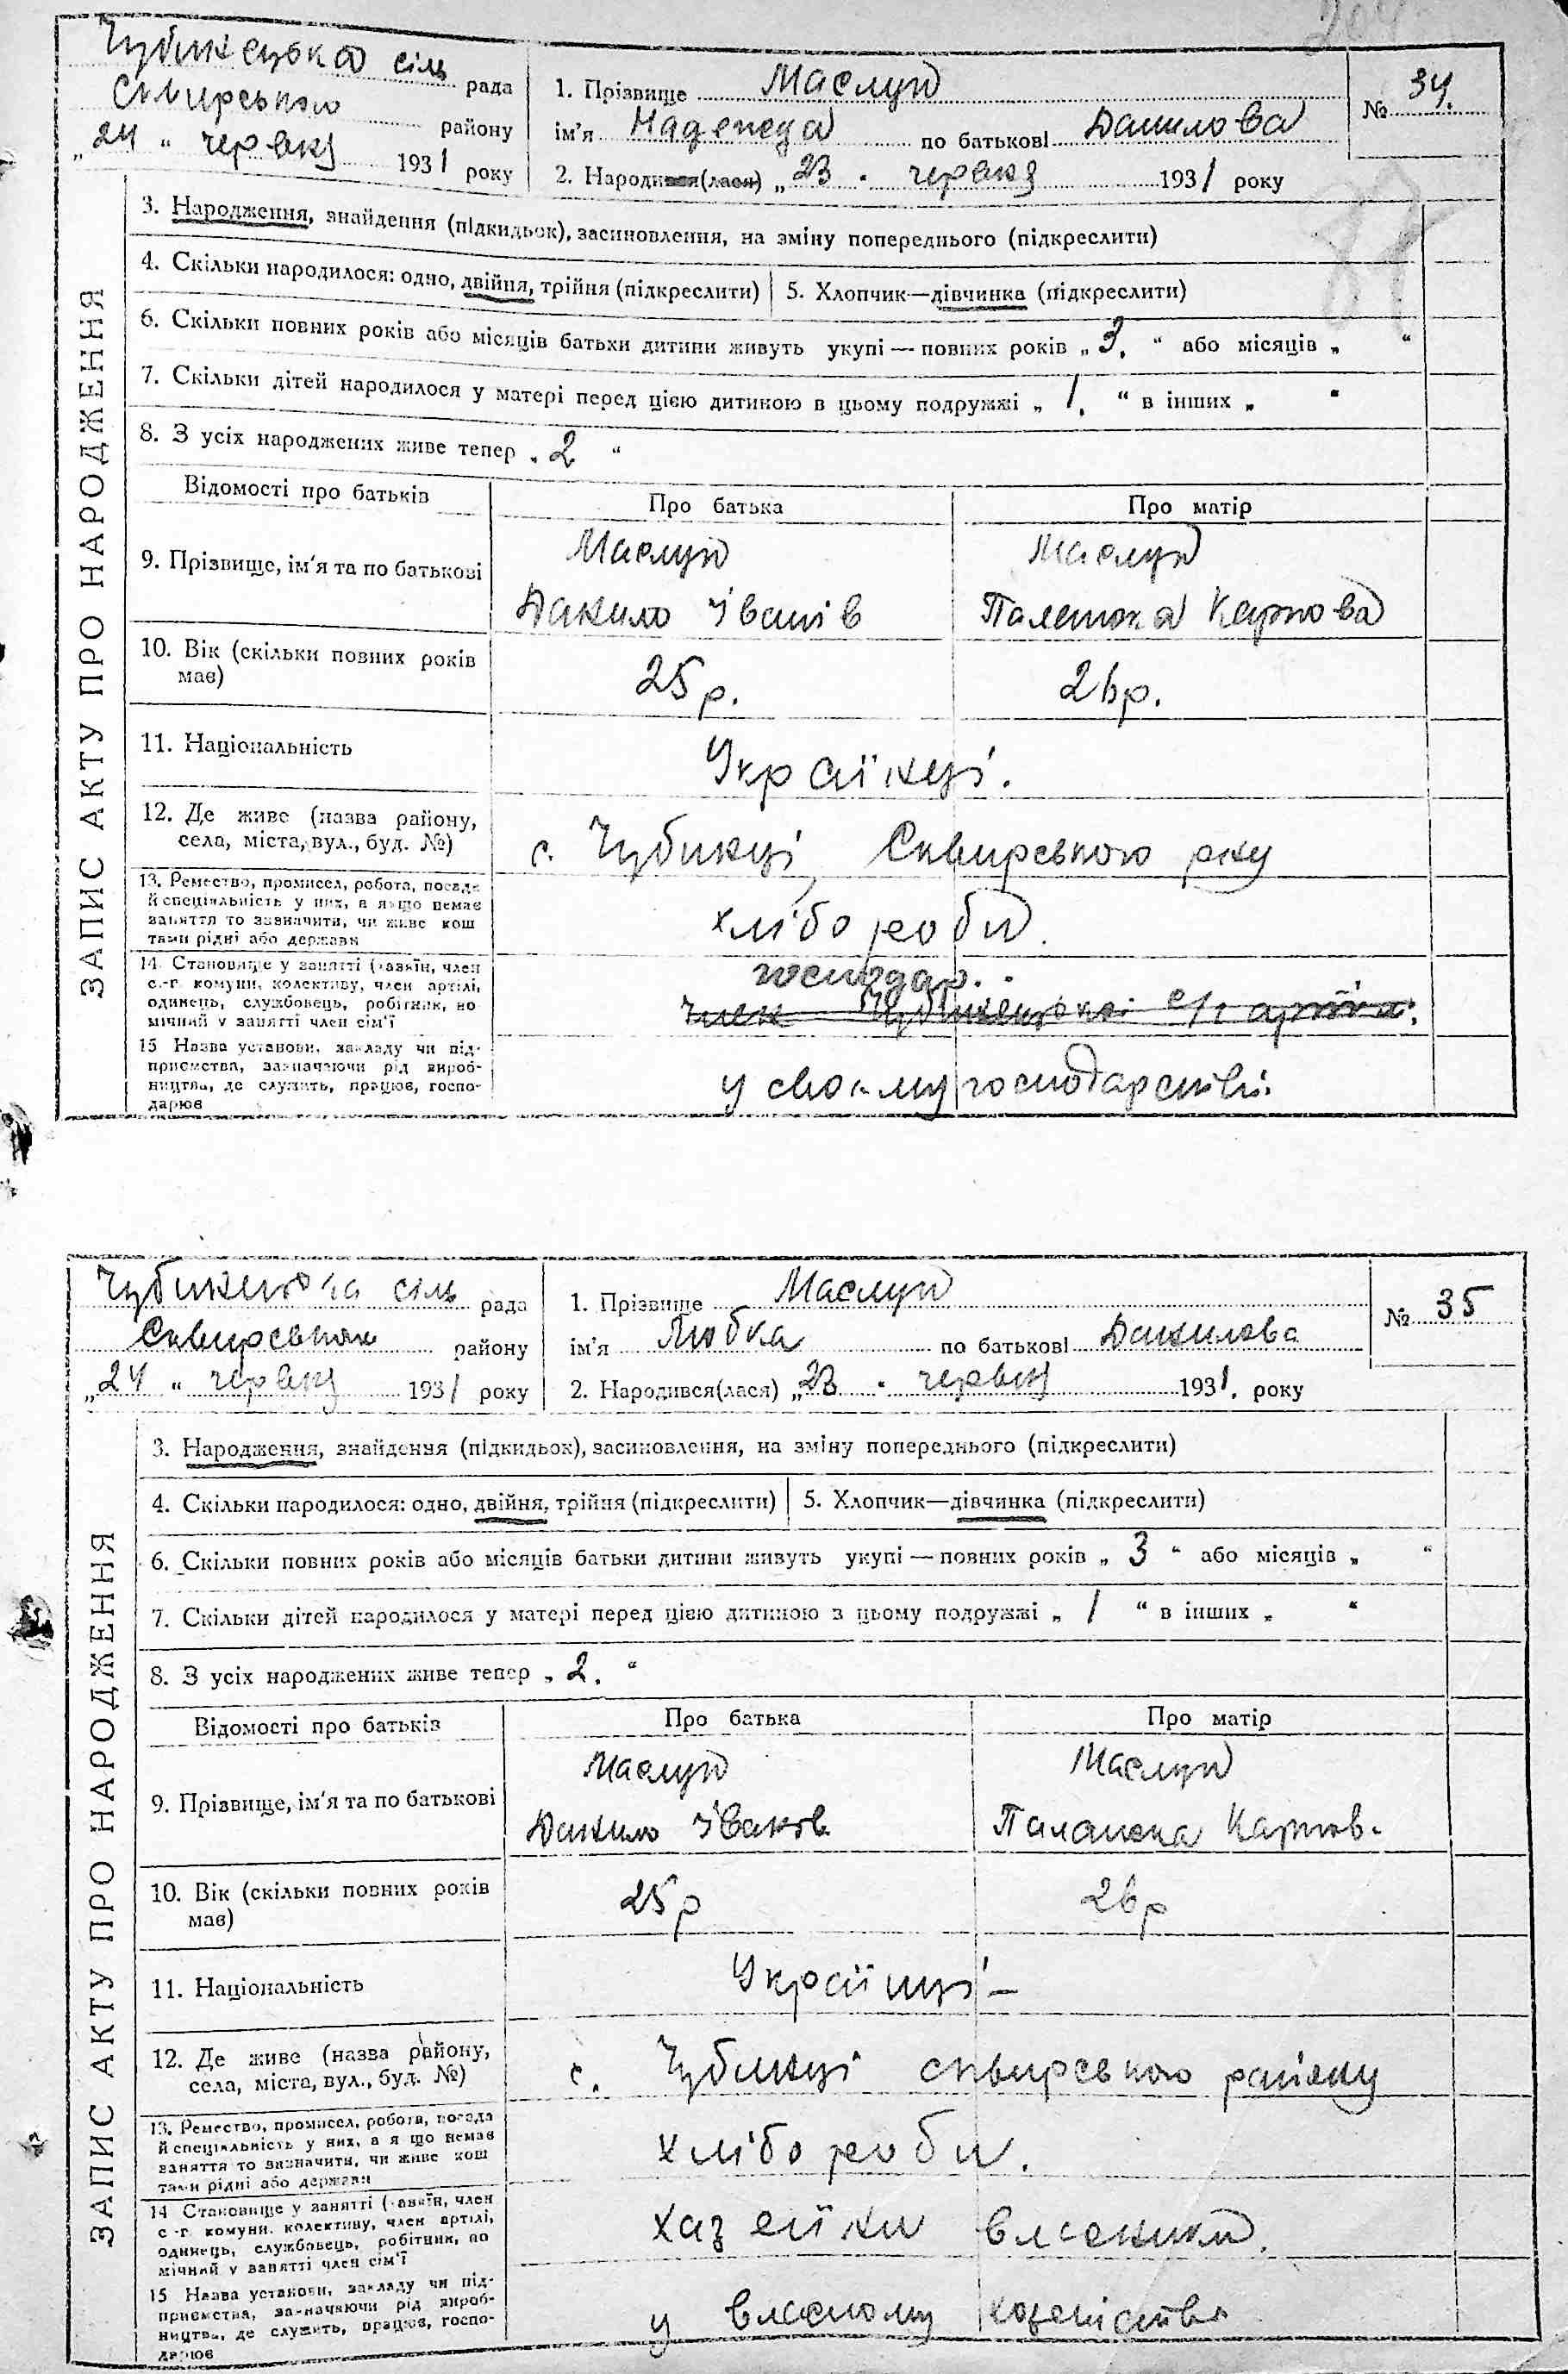 204
Чубинецька сіль рада
Сквирського району
„24 “ червня 1931 року
1. Прізвище Маслун
ім’я Надежда по батькові Данилова
2. Народився(лася) „23 “ червня 1931 року
№ 34.
ЗАПИС АКТУ ПРО НАРОДЖЕННЯ
3. Народження, знайдення (підкидьок), засиновлення, на зміну попереднього (підкреслити)
4. Скільки народилося: одно, двійня, трійня (підкреслити) 5. Хлопчик—дівчинка (підкреслити)
6. Скільки повних років або місяців батьки дитини живуть укупі — повних років „ 3. “ або місяців „ “
7. Скільки дітей народилося у матері перед цією дитиною в цьому подружжі „ 1. “ в інших „ “
8. З усіх народжених живе тепер „ 2 “
Відомості про батьків Про батька Про матір
9. Прізвище, ім’я та по батькові
Маслун Маслун
Данило Іванів Палажка Карпова
10. Вік (скільки повних років має)
25 р. 26 р.
11. Національність
Українці.
12. Де живе (назва району,
села, міста, вул., буд. №)
с. Чубинці Сквирського р-ну
13. Ремество, промисел, робота, посада
й спеціяльність у них, а якщо немає
заняття то зазначити, чи живе кош
тами рідні або держави
хлібороби.
14. Становище у занятті (хазяїн, член
с.-г. комуни, колективу, член артілі,
одинець, службовець, робітник, по
мічний у занятті член сім’ї
господар.
член Чубинецької с/г артіли.
15 Назва установи, закладу чи під-
приємства, зазначаючи рід вироб-
ництва, де служить, працює, госпо-
дарює
у своєму господарстві.
Чубинецька сіль рада
Сквирського району
„24 “ червня 1931 року
1. Прізвище Маслун
ім’я Любка по батькові Данилова
2. Народився(лася) „23 “ червня 1931. року
№ 35
ЗАПИС АКТУ ПРО НАРОДЖЕННЯ
3. Народження, знайдення (підкидьок), засиновлення, на зміну попереднього (підкреслити)
4. Скільки народилося: одно, двійня, трійня (підкреслити) 5. Хлопчик—дівчинка (підкреслити)
6. Скільки повних років або місяців батьки дитини живуть укупі — повних років „ 3 “ або місяців „ “
7. Скільки дітей народилося у матері перед цією дитиною в цьому подружжі „ 1 “ в інших „ “
8. З усіх народжених живе тепер „ 2. “
Відомості про батьків Про батька Про матір
9. Прізвище, ім’я та по батькові
Маслун Маслун
Данило Іванов Палажка Карпов.
10. Вік (скільки повних років
має)
25 р 26 р
11. Національність
Українці –
12. Де живе (назва району,
села, міста, вул., буд. №)
с. Чубинці сквирського району
13. Ремество, промисел, робота, посада
й спеціяльність у них, а якщо немає
заняття то зазначити, чи живе кош
тами рідні або держави
хлібороби.
14 Становище у занятті (хазяїн, член
с.-г. комуни, колективу, член артілі,
одинець, службовець, робітник, по
мічний у занятті член сім’ї
хазейни власники.
15 Назва установи, закладу чи під-
приємства, зазначаючи рід вироб-
ництва, де служить, працює, госпо-
дарює
у власному